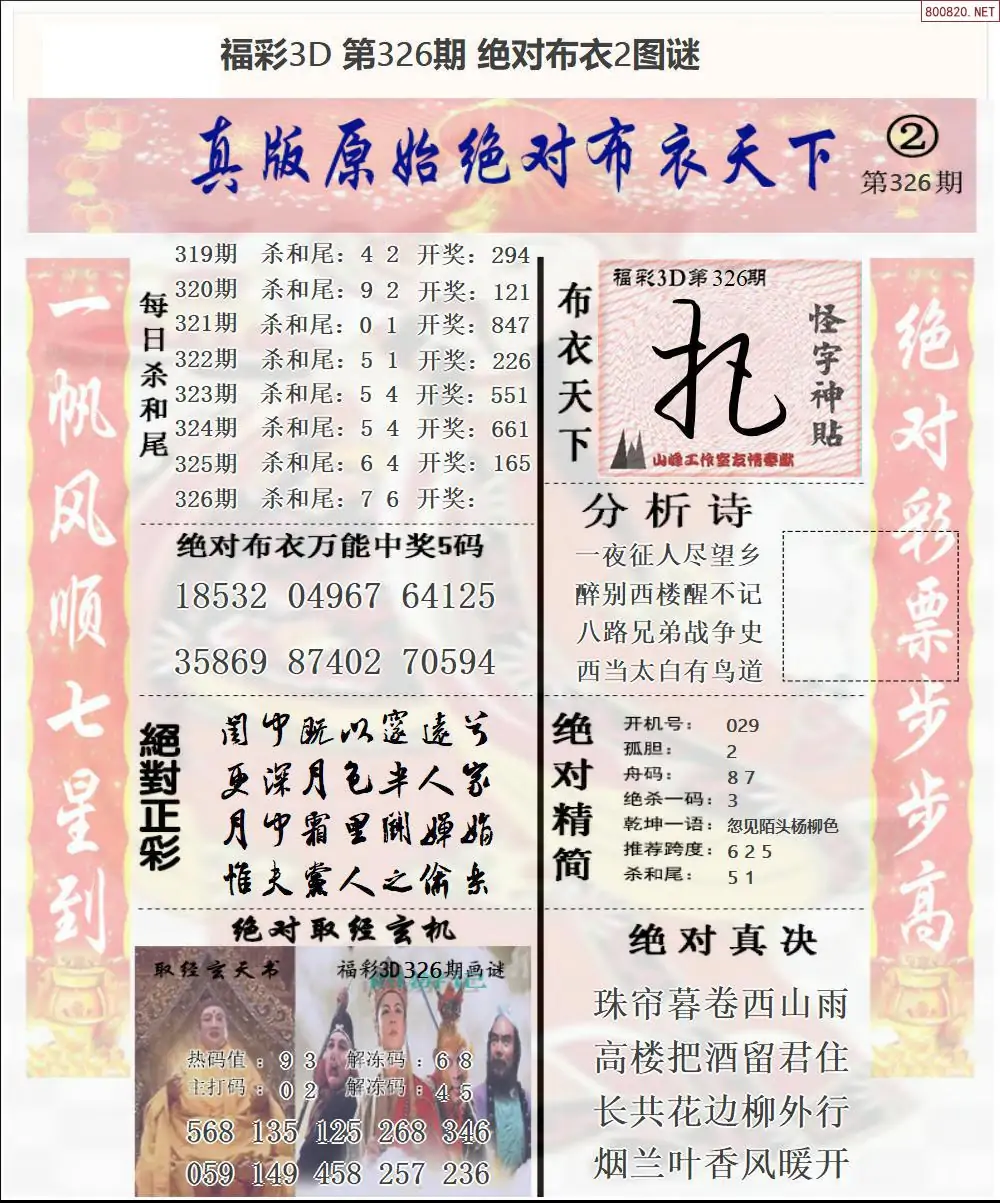 800820.NET
福彩3D 第326期 绝对布衣2图谜
真版原始绝对布衣天下
②
第326期
一帆风顺七星到
每日杀和尾
319期 杀和尾：4 2 开奖：294
320期 杀和尾：9 2 开奖：121
321期 杀和尾：0 1 开奖：847
322期 杀和尾：5 1 开奖：226
323期 杀和尾：5 4 开奖：551
324期 杀和尾：5 4 开奖：661
325期 杀和尾：6 4 开奖：165
326期 杀和尾：7 6 开奖：
绝对布衣万能中奖5码
18532 04967 64125
35869 87402 70594
絕對正彩
闺中既以邃遠兮
更深月色半人家
月中霜里闘婵娟
惟夫黨人之偷乐
绝对取经玄机
取经玄天书
福彩3D326期画谜
热码值：9 3 解冻码：6 8
主打码：0 2 解冻码：4 5
568 135 125 268 346
059 149 458 257 236
布衣天下
福彩3D第326期
怪字神貼
山峰工作室友情奉献
分析诗
一夜征人尽望乡
醉别西楼醒不记
八路兄弟战争史
西当太白有鸟道
绝对精简
开机号：029
孤胆：2
舟码：8 7
绝杀一码：3
乾坤一语：忽见陌头杨柳色
推荐跨度：6 2 5
杀和尾：5 1
绝对真决
珠帘暮卷西山雨
高楼把酒留君住
长共花边柳外行
烟兰叶香风暖开
绝对彩票步步高